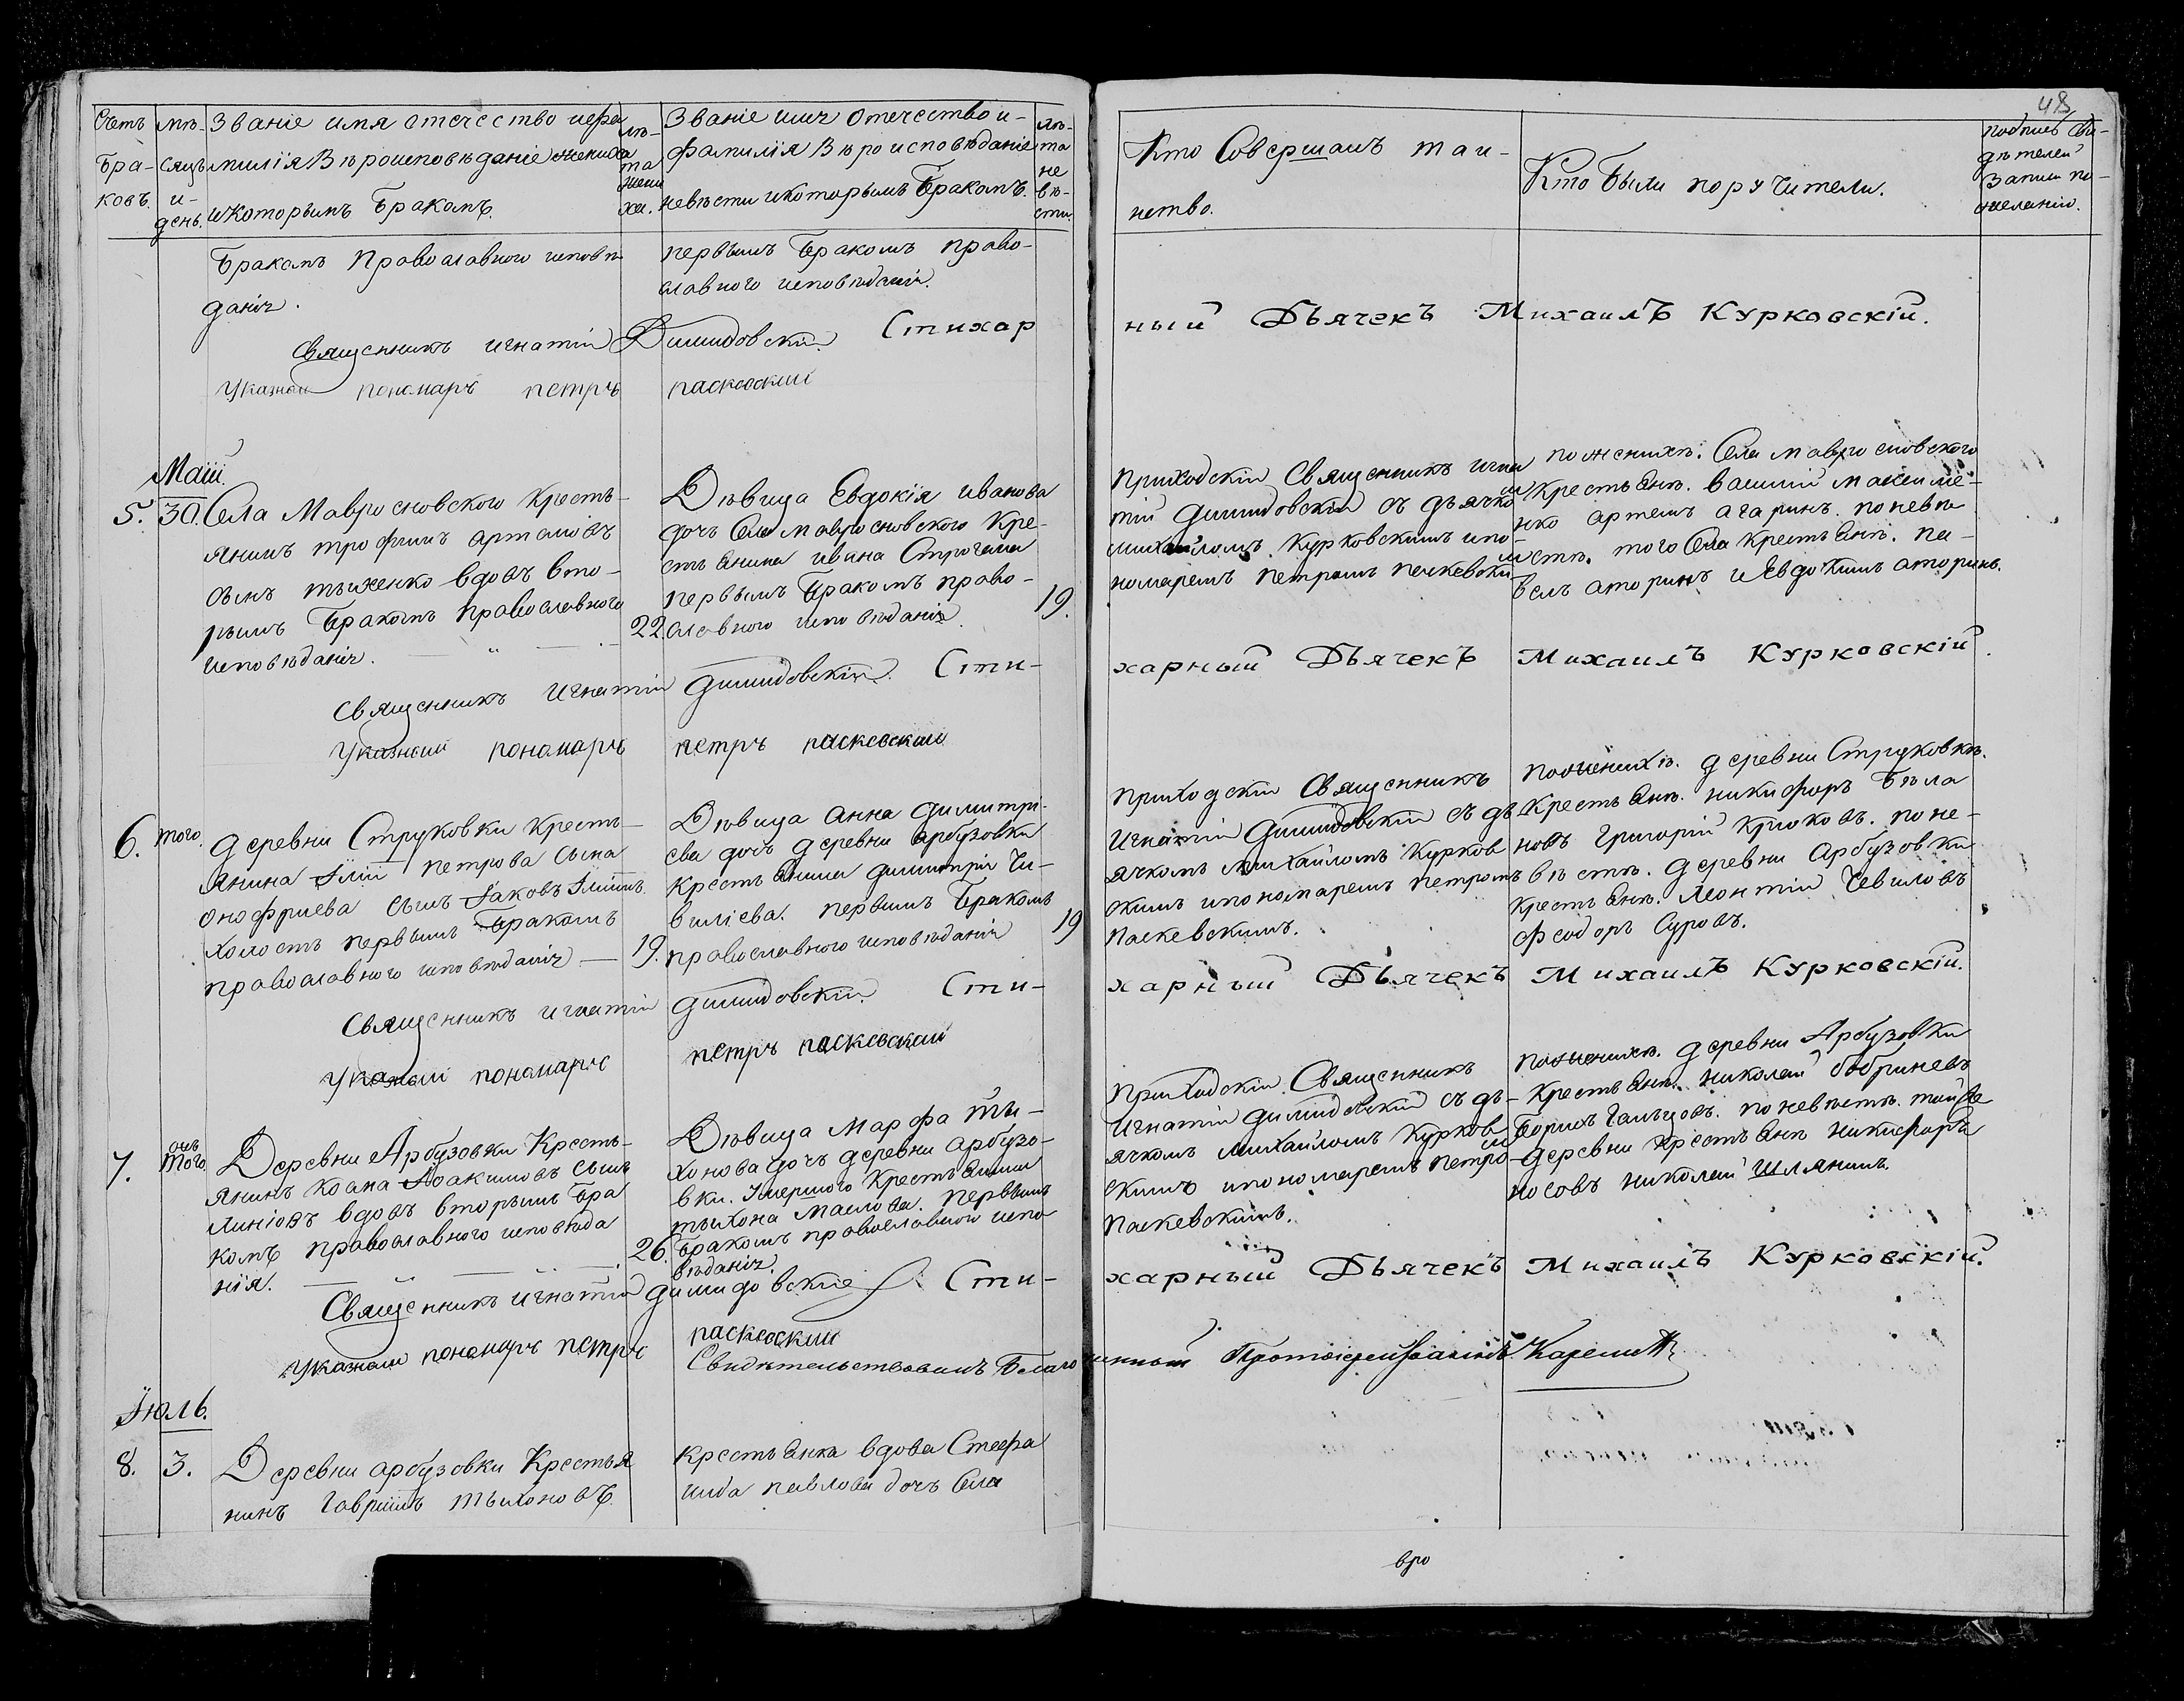 48
Счетъ бра-ковъ.
мѣ-сяцъ и-день.
Званіе имя отечество ифа
милія Вѣроисповѣданіе жениха
икоторымъ бракомъ.
лѣ-та жени ха.
Званіе имя отечество и-
фамилія Вѣроисповѣданіе
невѣсти икоторымъ бракомъ.
лѣ-та не вѣ-сти.
Кто Совершалъ таи-
нство.
Кто были поручители.
подписъ сви-
дѣтелей
Записи по-
желанію.
бракомъ Православного исповѣ
данія.
первымъ бракомъ право-
славного исповѣданія.
Священникъ Игнатій Димидовскій. Стихар
ный Дьячекъ Михаилъ Курковскій.
Указный пономарь петръ паскевскии
Маій
5. 30. Села Мавросновского Кресть-
янинъ трофимъ артемовъ
сынъ тыженко вдовъ вто-
рымъ бракомъ православного
исповѣданія.
22.
Дѣвица Евдокія иванова
дочь Села мавросновского Кре-
стьянина ивана Строгана
первымъ бракомъ право-
славного исповѣданія.
19.
Приходскій Священникъ игна
тій димидовскій съ дьячко
михайломъ Курковскимъ ипо-
номаремъ петромъ паскевски
поженихѣ. Села мавросновского
Крестьянѣ. василій максиме-
нко артемъ агаринъ. поневѣ
стѣ. того Села крестьянѣ. па-
велъ аторинъ иЕвдокимъ аторинъ.
Священникъ Игнатій димидовскій. Сти-
харный Дьячекъ Михаилъ Курковскій.
Указный пономарь петръ паскевскии
6. того. деревни Струковки кресть-
янина Іліи петрова сына
онофриева сынъ Іаковъ Іліинъ
холостъ первымъ бракомъ
православного исповѣданія
19.
Дѣвица анна димитрі-
ева дочь деревни арбузовки
крестьянина димитрія Че-
вилієва. первымъ бракомъ
православного исповѣданія
19
приходскій Священникъ
Игнатій димидовскій съ дь
ячкомъ михайломъ Курков
скимъ ипономаремъ петромъ
паскевскимъ.
поженихѣ. деревни Струковки.
крестьянѣ. никифоръ бѣла
новъ григорій крюковъ. поне-
вѣстѣ. деревни арбузовки
крестьянѣ. леонтій Чевиловъ
феодоръ Суровъ.
Священникъ игнатій димидовскій. Сти-
харный Дьячекъ Михаилъ Курковскій.
Указный пономарь петръ паскевскии
7. того. Деревни Арбузовки Кресть-
янинъ Іоакимовъ сынъ
линіовъ вдовъ вторымъ бра
комъ православного исповѣда
нія.
26.
Дѣвица марфа ты-
хонова дочь деревни арбузо-
вки. Умершого Крестьянина
тыхона маслова. первымъ
бракомъ православного испо
вѣданія.
приходскій Священникъ
Игнатій димидовскій съ дь-
ячкомъ михайломъ Курков
скимъ ипономаремъ петро
паскевскимъ.
поженихѣ. деревни Арбузовки
Крестьянѣ. николай бобриневъ
борисъ гальцовъ. поневѣстѣ. тойже
деревни крестьянѣ никифоръ
носовъ николай шлянинъ.
Священникъ игнатій димидовскіе Сти-
харный Дьячекъ Михаилъ Курковскій.
Указный пономарь петръ паскевскии
Свидѣтельствовалъ Благочинный Протоіерей
Іюль.
8. 3. Деревни арбузовки Крестья
нинъ гавріилъ тыхоновъ
крестьянка вдова Стефа
нида павлова дочь Села
вро